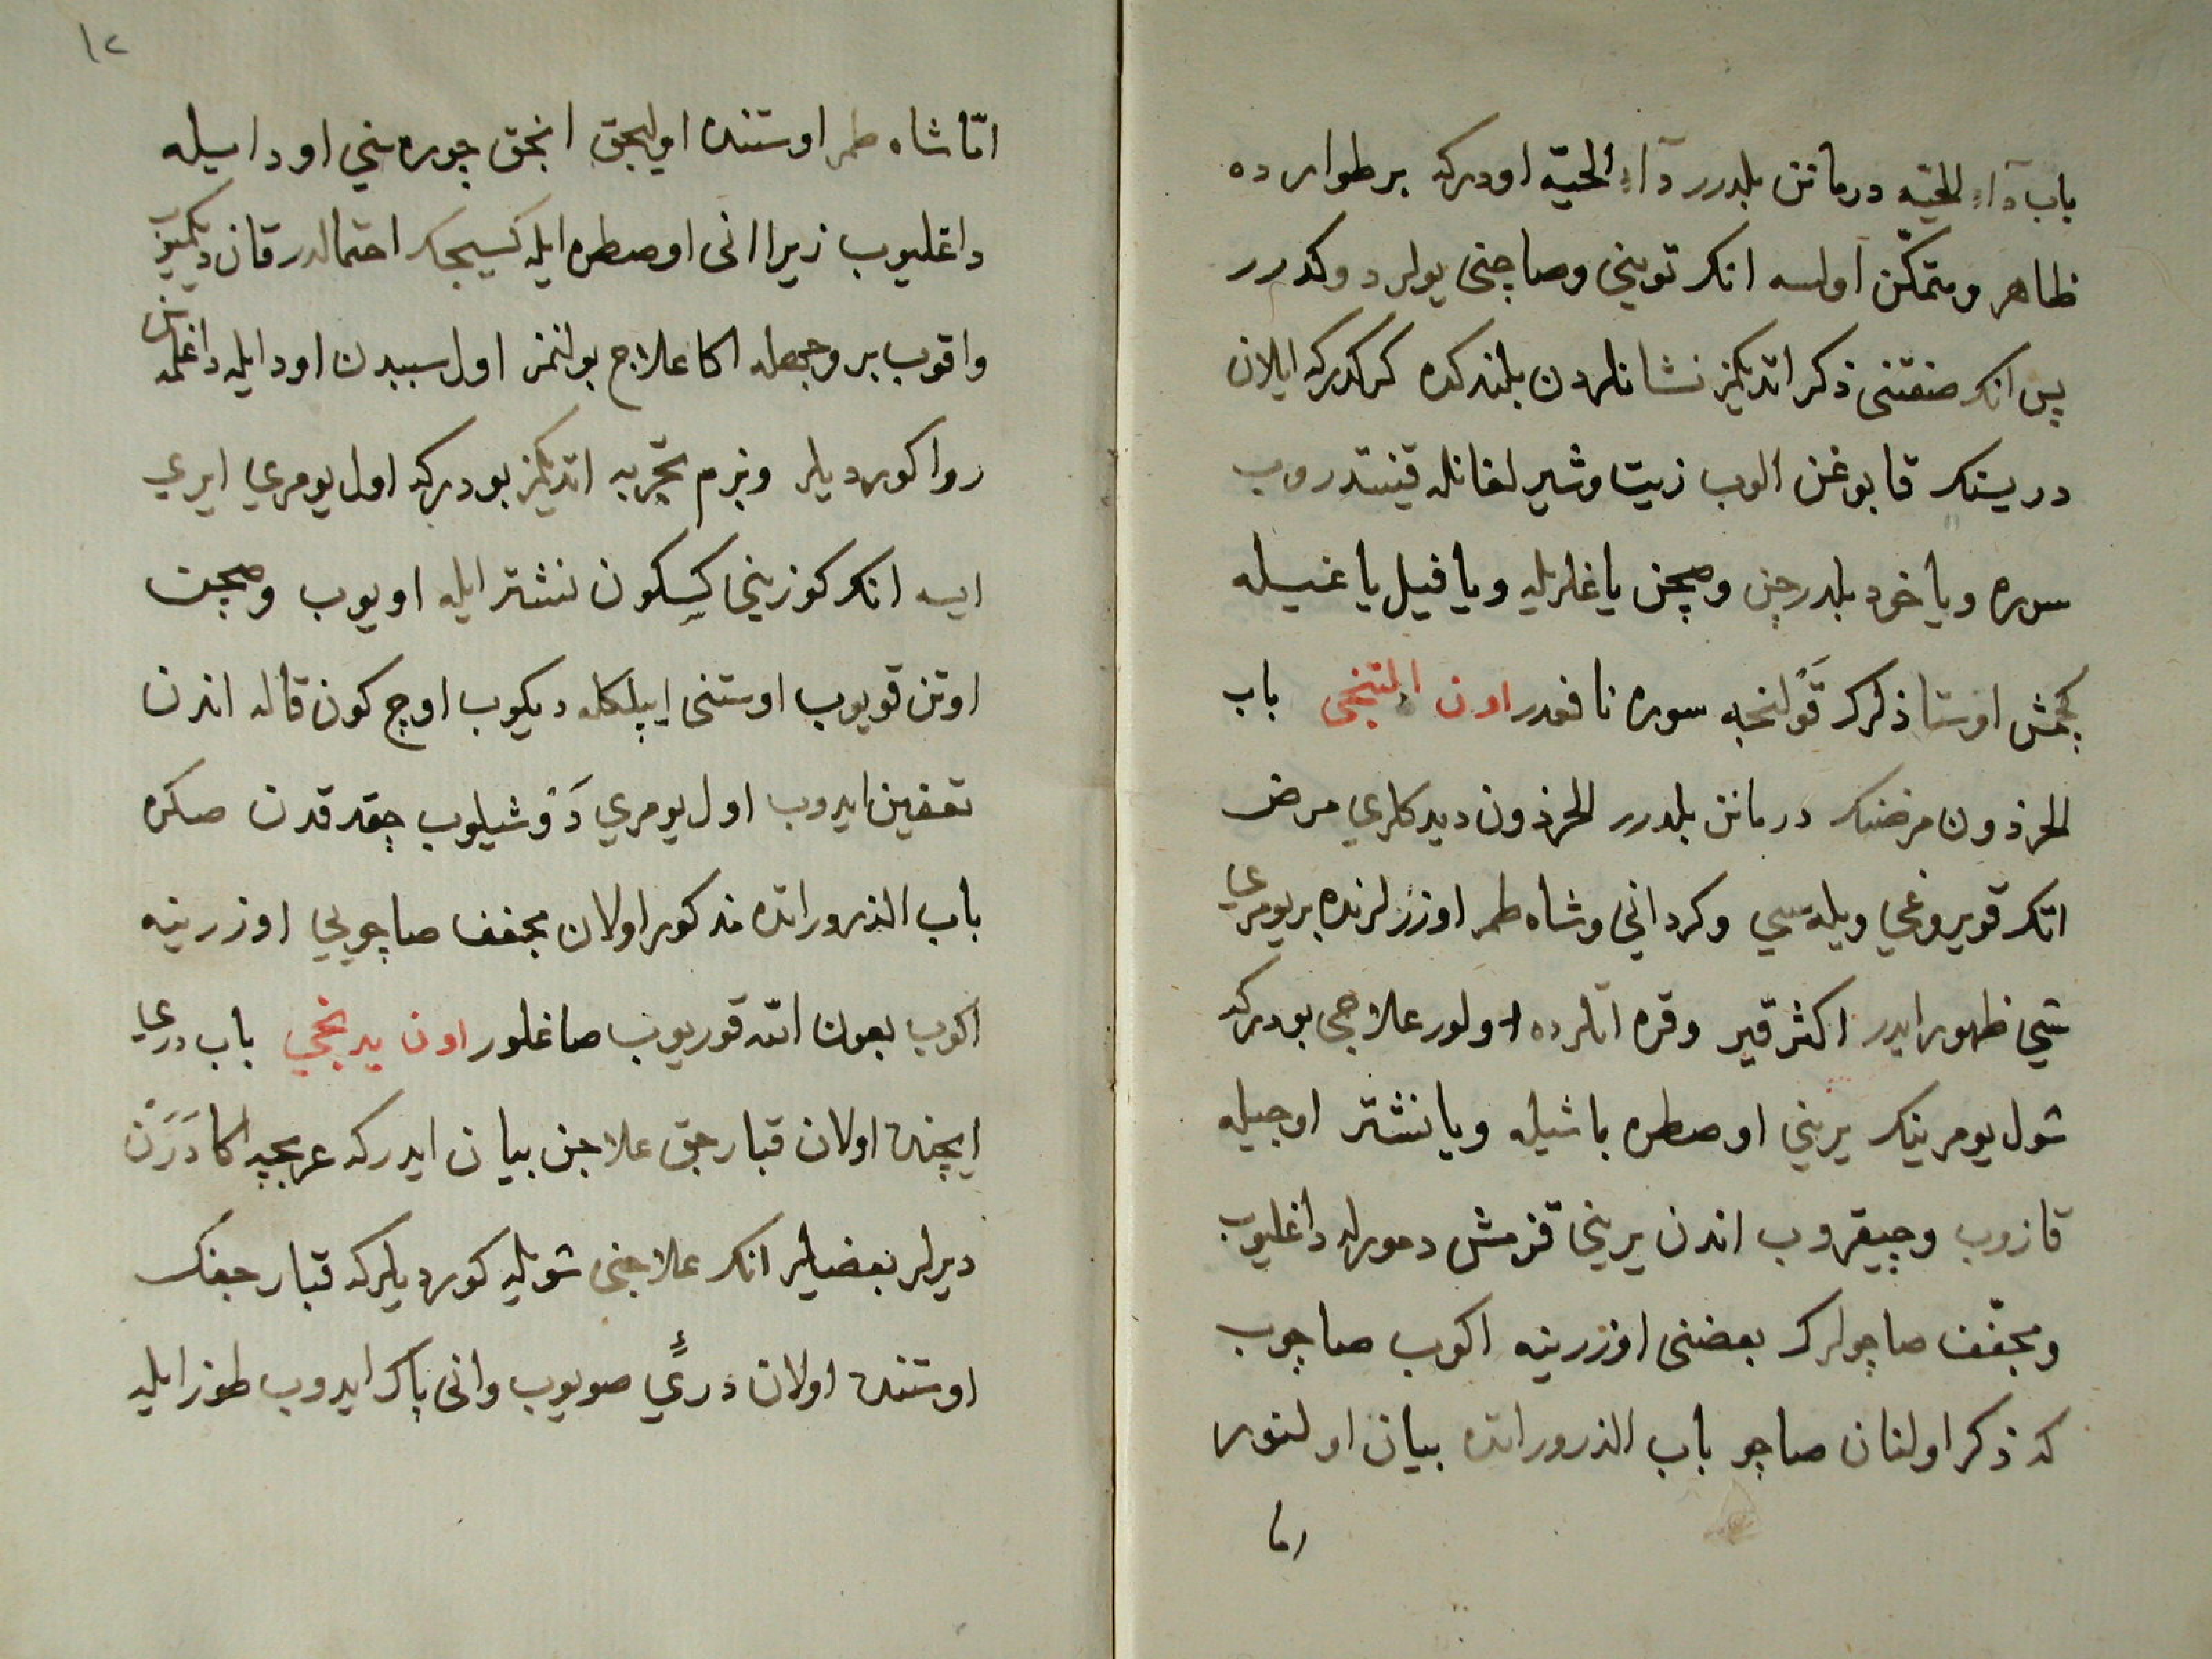 باب دآء الحيّه درمانن بلدرر دآء الحيّه اودركه بر طوارده
ظاهر و متمكّن اولسه انك توينى وصاچنى يولر دوكدرر
پس انك صفتنى ذكر اتديكمز نشانلردن بلندكده كركدركه ايلان
دريسنك قابوغن الوب زيت وشيرلغانله قيندروب
سوره وياخود بلدرجن وصچن ياغلريله ويا فيل ياغيسله
كچمش اوستاذلرك قولنجه سوره نافعدر اون التنجى باب
الحرذون مرضنك درمانن بلدرر الحرذون ديدكلرى مرض
اتك قويروغى ويله سى وكردانى وشاه طمر اوزرلرنده بر يومرى
شى ظهور ايدر اكثر قير وقره اتلرده اولور علاجى بودركه
شول يومرينك يرينى اوصطره باشيله ويا نشتر اوجيله
قازوب وچيقروب اندن يرينى قزمش دمورله داغليوب
ومجفّف صاچولرك بعضنى اوزرينه اكوب صاچوب
كه ذكر اولنان صاچو باب الذروراتده بيان اولنور
امّا
١٢
امّا شاه طمر اوستنده اوليجق انجق چوره سني اود ايله
داغليوب زيرا انى اوصطره ايله كسيجك احتمالدر قان ديكميوب
واقوب بر وجهله اكا علاج بولنمز اول سببدن اود ايله داغلمه سن
روا كورديلر وبزم تجربه اتديكمز بودركه اول يومري ايري
ايسه انك كوزيني كسكون نشتر ايله اويوب وصچن
اوتن قويوب اوستنى ايپلكله ديكوب اوچ كون قاله اندن
تعفين ايدوب اول يومري دوشيلوب چقدقدن صكره
باب الذروراتده مذكور اولان مجفف صاچويي اوزرينه
اكوب بعون الله قوريوب صاغلور اون يدنجي باب درى
ايچنده اولان قبارجق علاجن بيان ايدركه عربجه اكا دَرَن
ديرلر بعضيلر انك علاجنى شويله كورديلركه قبارجغك
اوستنده اولان دريّي صويوب وانى پاك ايدوب طوز ايله